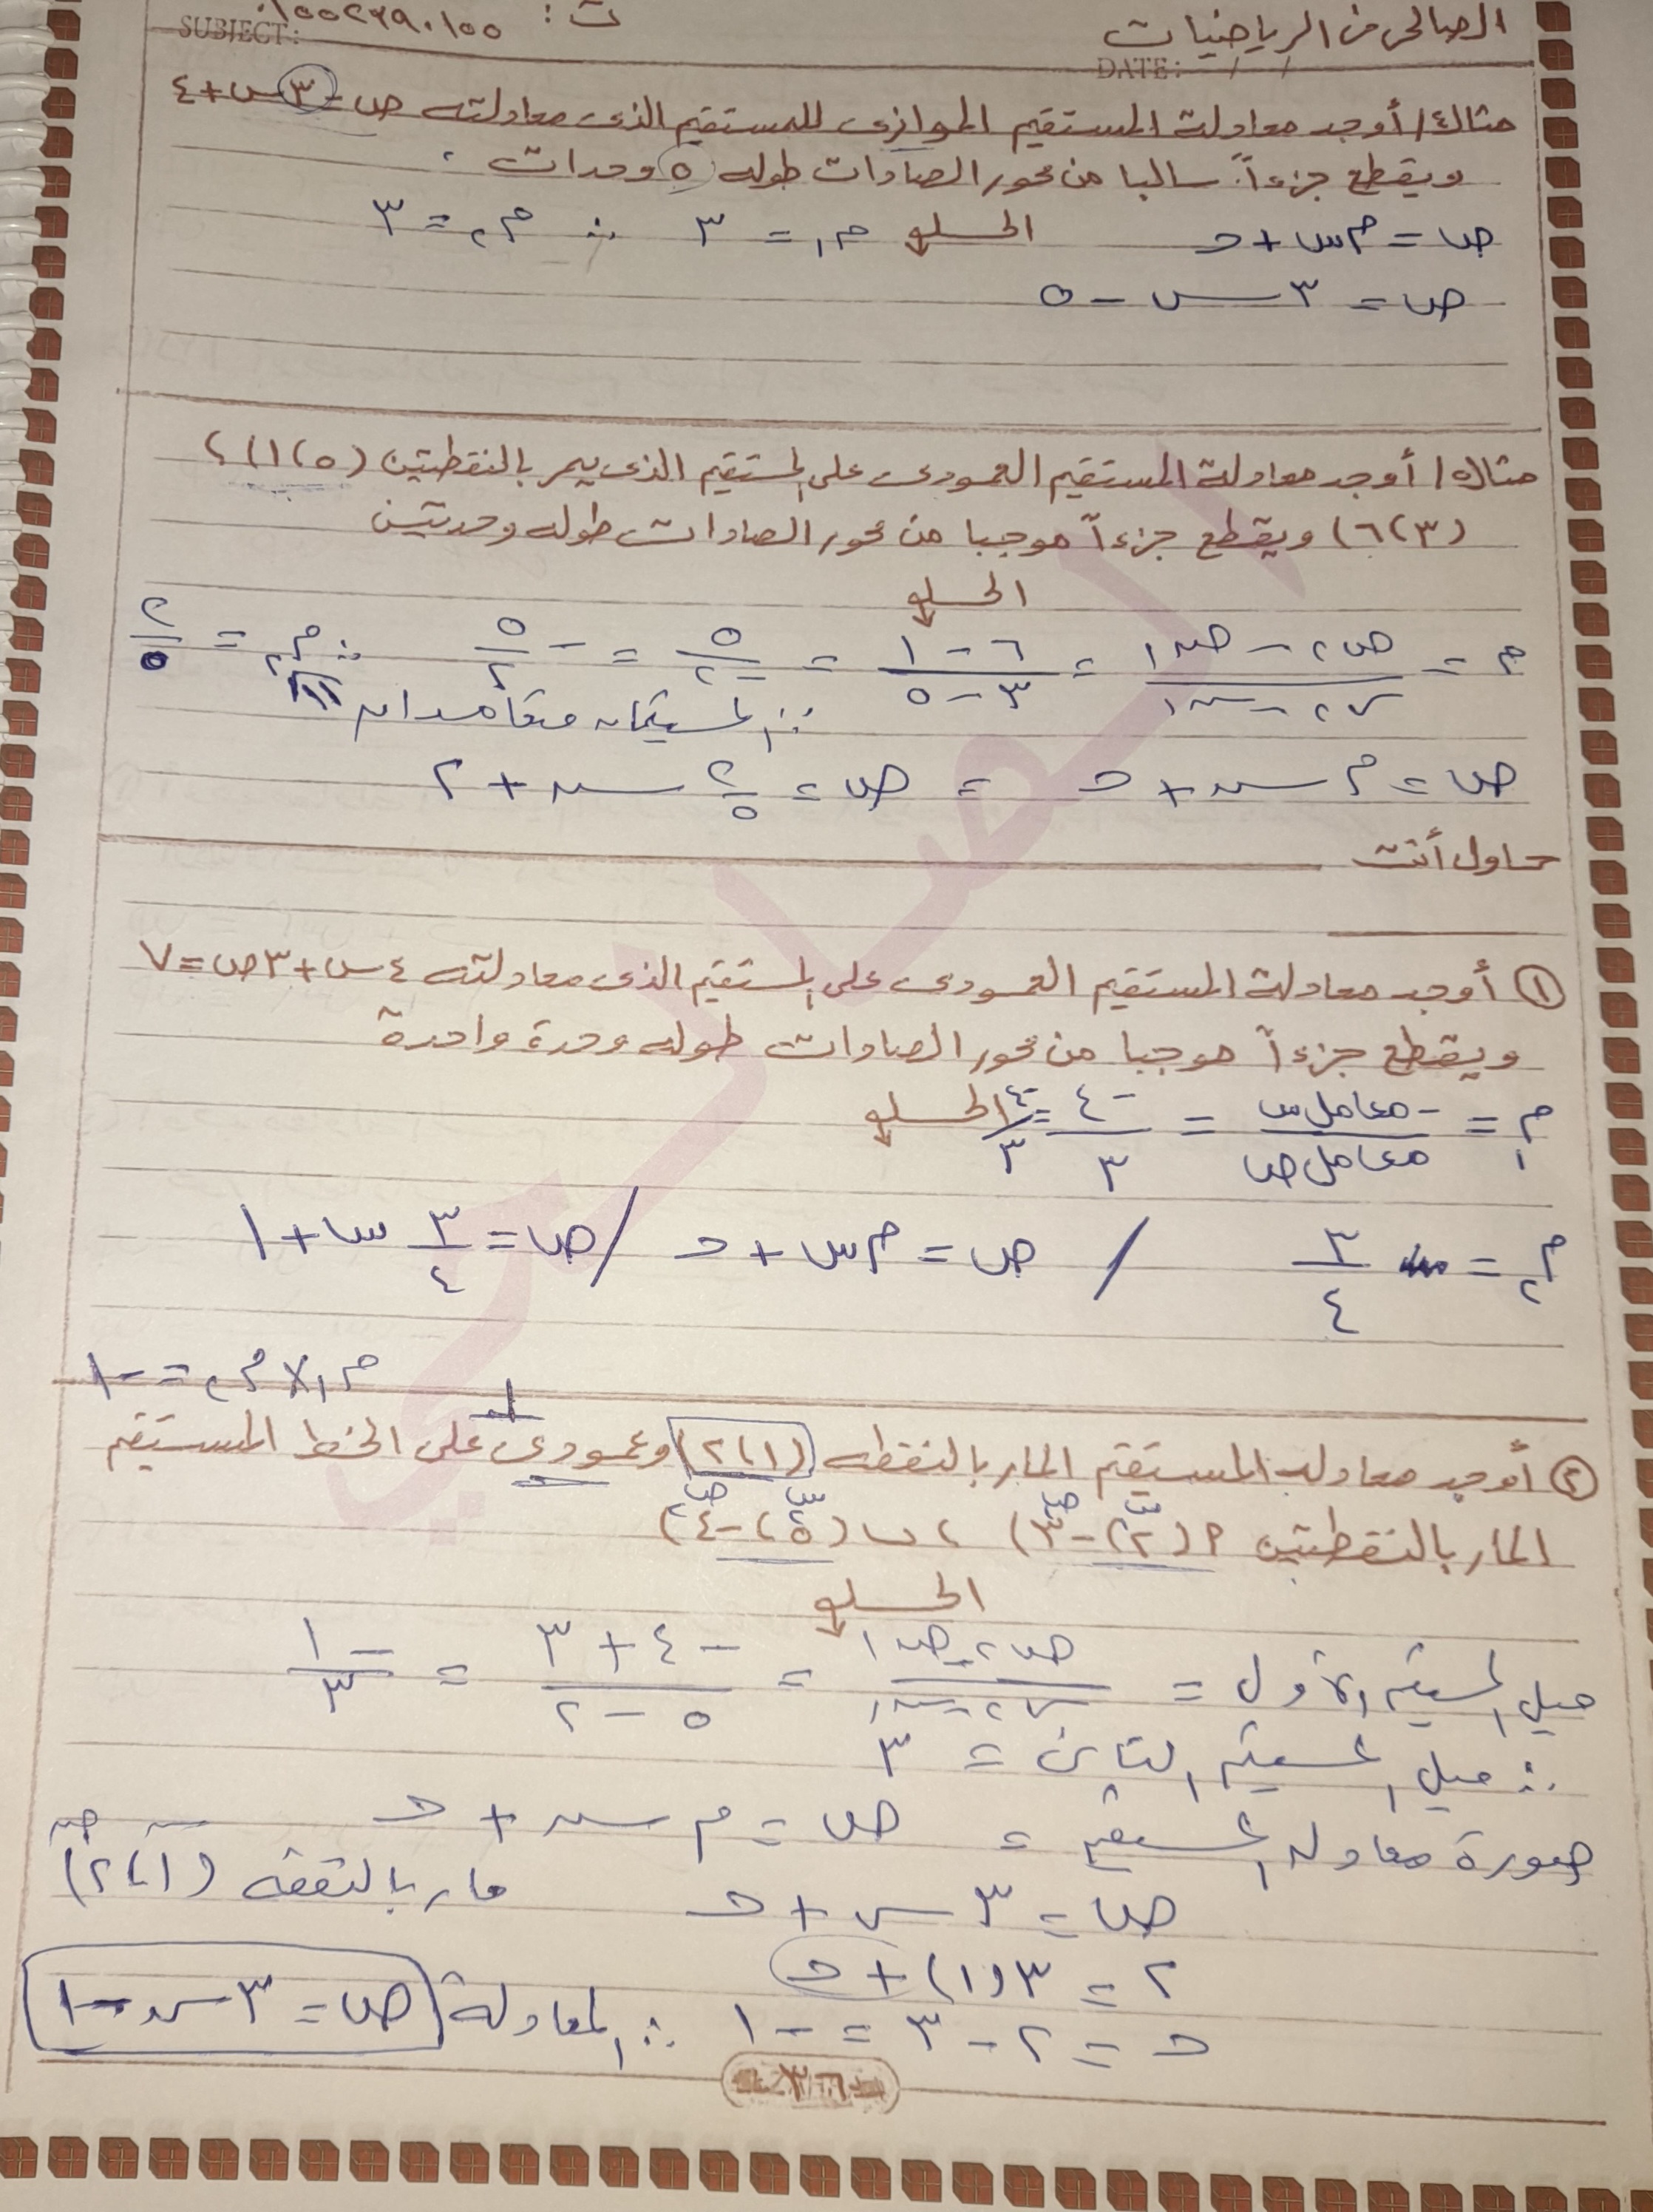 الصالحى فى الرياضيات
ت: ٠١٠٠٢٦٩٠١٠٠
SUBJECT:
DATE: / /
مثال٤/ أوجد معادلة المستقيم الموازى للمستقيم الذى معادلته ص = ٣س + ٤
ويقطع جزءاً سالبا من محور الصادات طوله ٥ وحدات.
الحل
ص = م س + حـ م١ = ٣ ∴ م٢ = ٣
ص = ٣س - ٥
مثال٥/ أوجد معادلة المستقيم العمودى على المستقيم الذى يمر بالنقطتين (٥،١)،
(٣،٦) ويقطع جزءاً موجبا من محور الصادات طوله وحدتين
الحل
م = (ص٢ - ص١)/(س٢ - س١) = (٦ - ١)/(٣ - ٥) = ٥/-٢ = -٥/٢ ∴ م٢ = ٢/٥
∵ المستقيمان متعامدان
ص = م س + حـ = ص = ٢/٥ س + ٢
حاول أنت
① أوجد معادلة المستقيم العمودى على المستقيم الذى معادلته ٤س + ٣ص = ٧
ويقطع جزءاً موجبا من محور الصادات طوله وحدة واحدة
الحل
م١ = -معامل س/معامل ص = -٤/٣ = -٤/٣
م٢ = ٣/٤ / ص = م س + حـ / ص = ٣/٤ س + ١
م١ × م٢ = -١
② أوجد معادله المستقيم المار بالنقطه (١،٢) وعمودى على الخط المستقيم
المار بالنقطتين أ (٢،-٣) ، ب (٥،-٤)
الحل
ميل المستقيم الأول = (ص٢ - ص١)/(س٢ - س١) = (-٤ + ٣)/(٥ - ٢) = -١/٣
∴ ميل المستقيم الثانى = ٣
صورة معادلة المستقيم = ص = م س + حـ
ص = ٣س + حـ مار بالنقطه (١،٢)
٢ = ٣(١) + حـ
حـ = ٢ - ٣ = -١ ∴ المعادلة ص = ٣س - ١